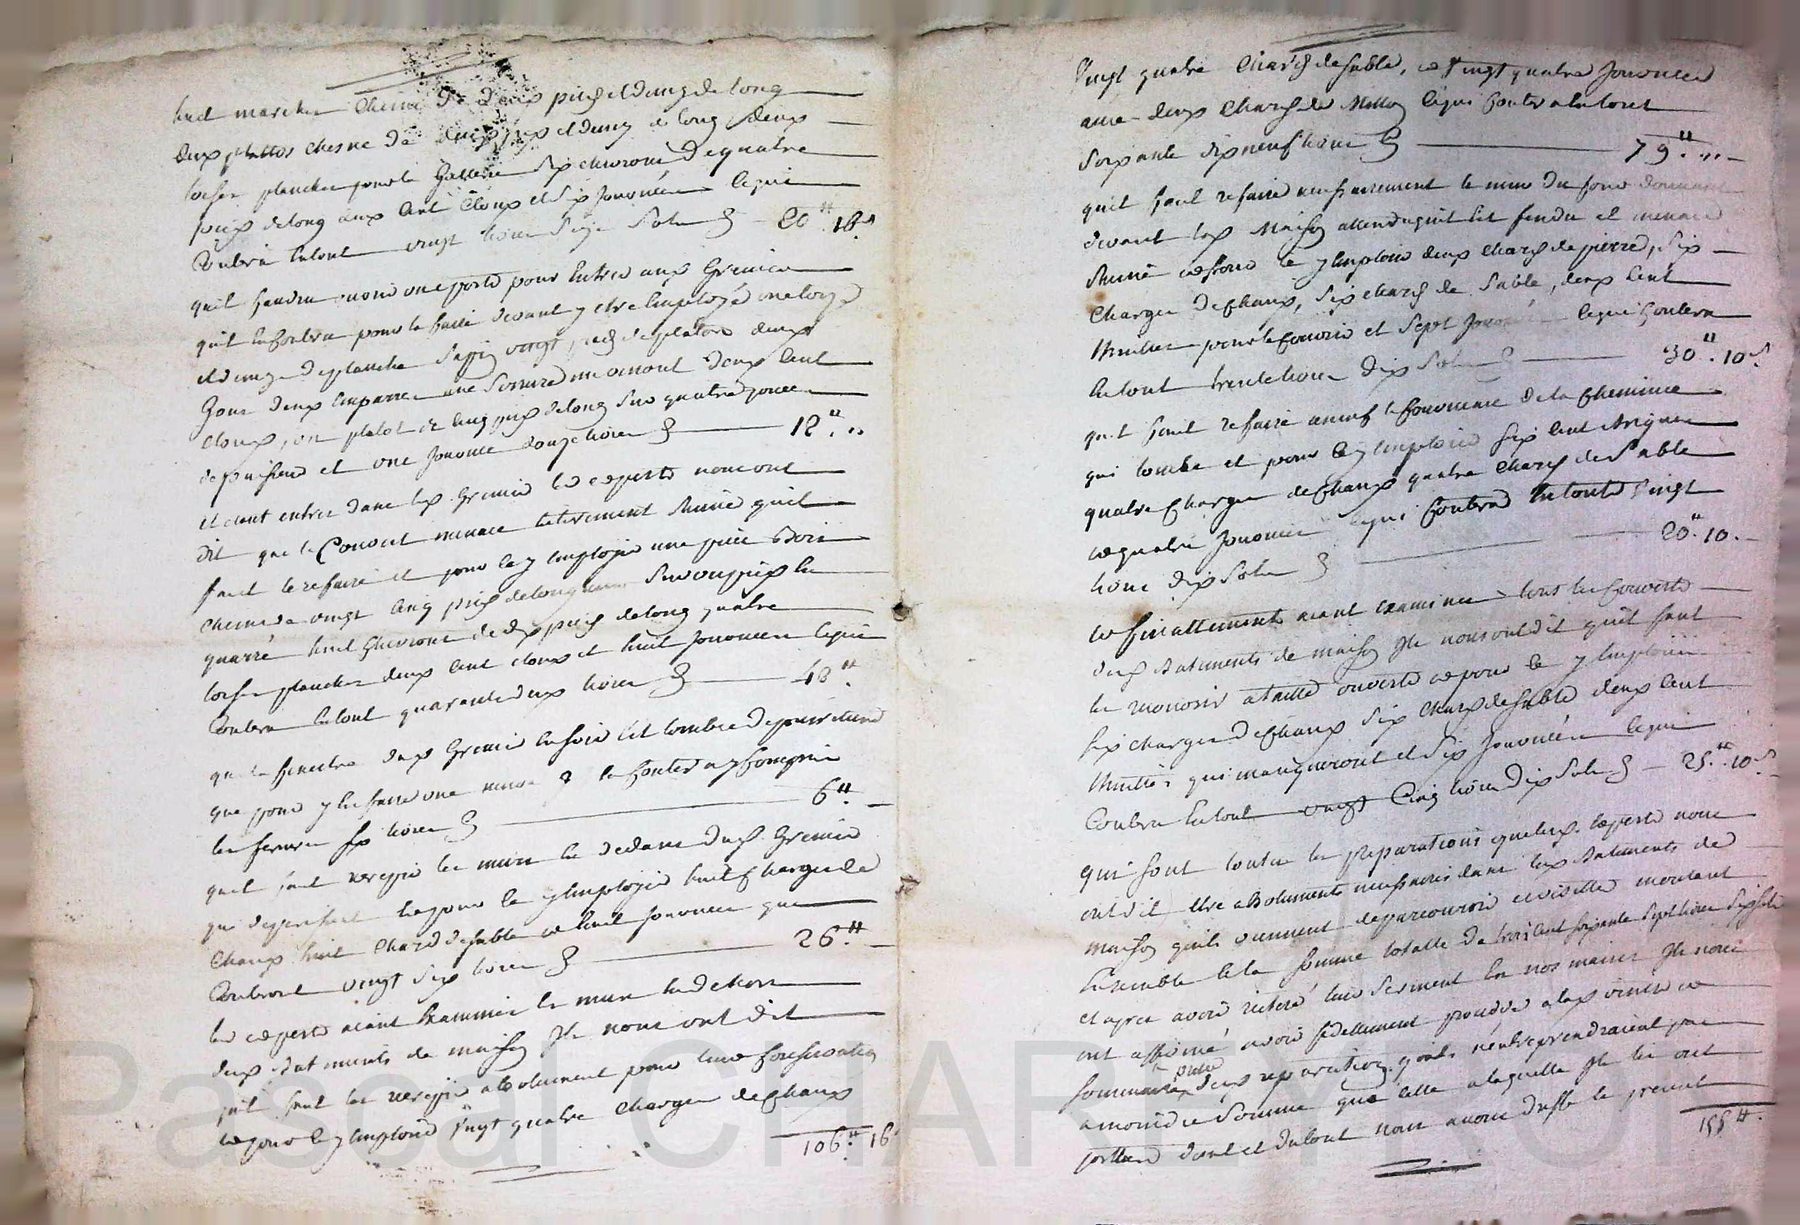 huit marches chesne de deux pieds et demy de long
deux plattos chesne de cinq pieds et demy de long, deux
toises planches pour la Gallerie six chevrons de quatre
pieds de long aux cent cloux et six journées ce qui
Coutera en tout vingt livres seize sols 20# 16s
qu'il faudra une porte pour entrer aux Greniers
qu'il en coutera pour la faire devant y etre employé une toize
et demy de planche sappin vingt pieds de platons deux
Gons deux emparres une serrure un cent
cloux, un platot de cinq pieds de long sur quatre pouces
d'epaisseur et une journée douze livres 12#
et etant entres dans les Greniers les experts nous ont
dit que le Couvert menace entierement Ruine qu'il
faut le refaire et pour ce y employer une piece Bois
chesne de vingt cinq pieds de longueur sur
quarré huit Chevrons de dix pieds de long quatre
toises planches deux cent cloux et huit journées ce qui
Coutera en tout quarante deux livres 42#
que la fenetre des Greniers en soir est tombée de pourriture
que pour y en faire une neuve il en coutera y compris
les ferrures six livres 6#
qu'il faut recrepir les murs en dedans des Greniers
qui deperissent et pour ce y employer huit Charges de
Chaux huit Chards de sable et huit journées que
Couteront vingt six livres 26#
les experts aiant Examinés les murs en dehors
deux Batiments de maison Ils nous ont dit
qu'il faut les recrepir absolument pour leur conservation
et pour ce y employer vingt quatre charges de Chaux
106# 16s
Pascal CHAREYRON
Vingt quatre Chards de sable, et vingt quatre Journées
avec deux Chards de Mallons ce qui coutera en tout
soixante dix neuf livres 79#
qu'il faut refaire necessairement le mur du four donnant
devant la maison attendu qu'il est fendu et menace
Ruine et pour ce y employer deux Chards de pierre, six
Charges de Chaux, six chards de sable, deux cent
thuilles pour le couvrir et sept journées ce qui Coutera
en tout trente livres dix sols 30# 10s
qu'il faut refaire a neuf le couronnement de la Cheminée
qui tombe et pour ce y employer six cent Briques
quatre Charges de Chaux quatre Chards de Sable
et quatre journées ce qui Coutera en tout vingt
livres dix sols 20# 10
et finallement aiant examinés tous les Couverts
des Batiments de maison Ils nous ont dit qu'il faut
les remanier a taille ouverte et pour ce y employer
six charges de Chaux six Chards de sable deux cent
thuilles qui manqueront et six journées ce qui
Coutera en tout vingt Cinq livres dix sols 25# 10s
qui sont toutes les Reparations que les experts nous
ont dit etre absolument necessaires dans les Batiments de
maison qu'ils viennent de parcourir et visiter montant
Ensemble a la somme totalle de trois cent soixante sept livres six sols
et apres avoir reiteré leur serment en nos mains Ils nous
ont affirmé avoir fidellement procedé a la visitte et
sommaire prisée des reparations qu'ils n'entreprendraient pas
a moindre somme que celle a laquelle Ils les ont
portées dont et du tout nous avons dressé le present
155#.